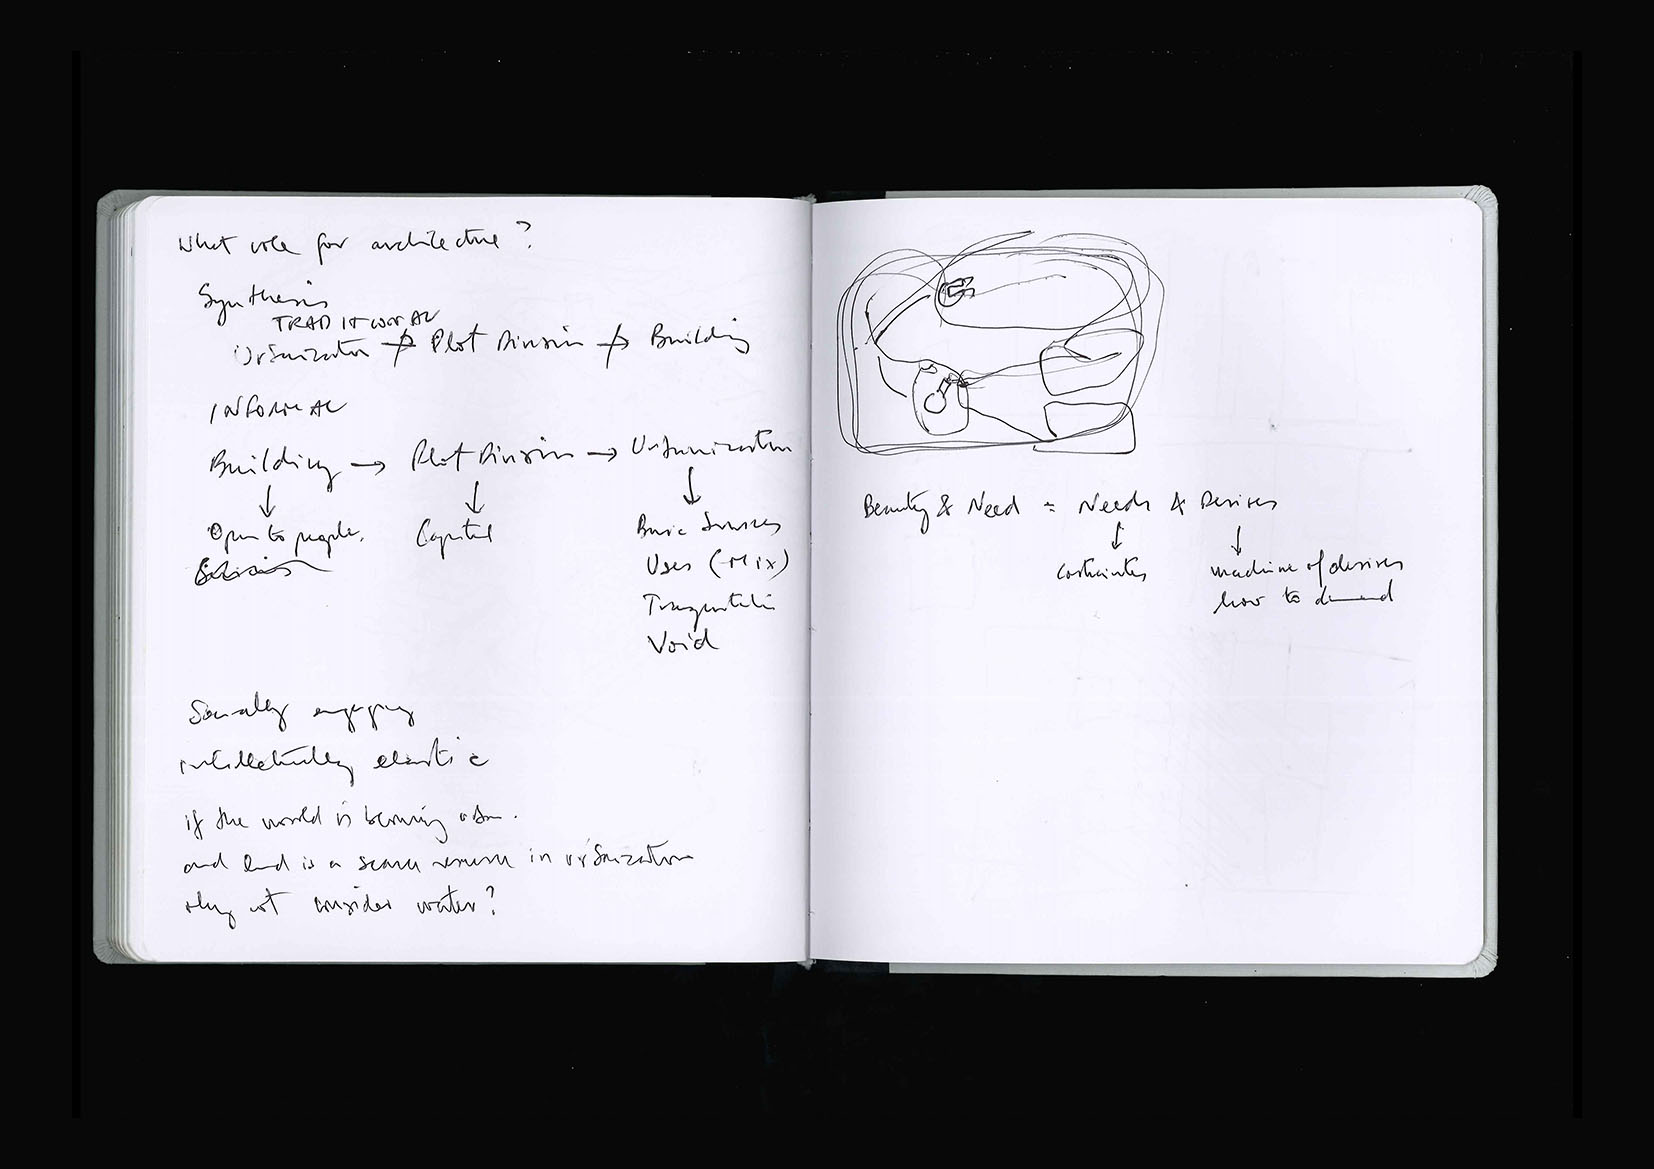 What role for architecture?
Synthesis
TRADITIONAL
Urbanization → Plot Division → Building
INFORMAL
Building → Plot Division → Urbanization
↓ ↓ ↓
Open to people. Capital Basic Services
Uses (Mix)
Transportation
Void
Socially engaging
intellectually elastic
if the world is becoming urban.
and land is a scarce resource in urbanization
why not consider water?
Beauty & Need = Needs & Desires
↓ ↓
constraints machine of desires
how to demand